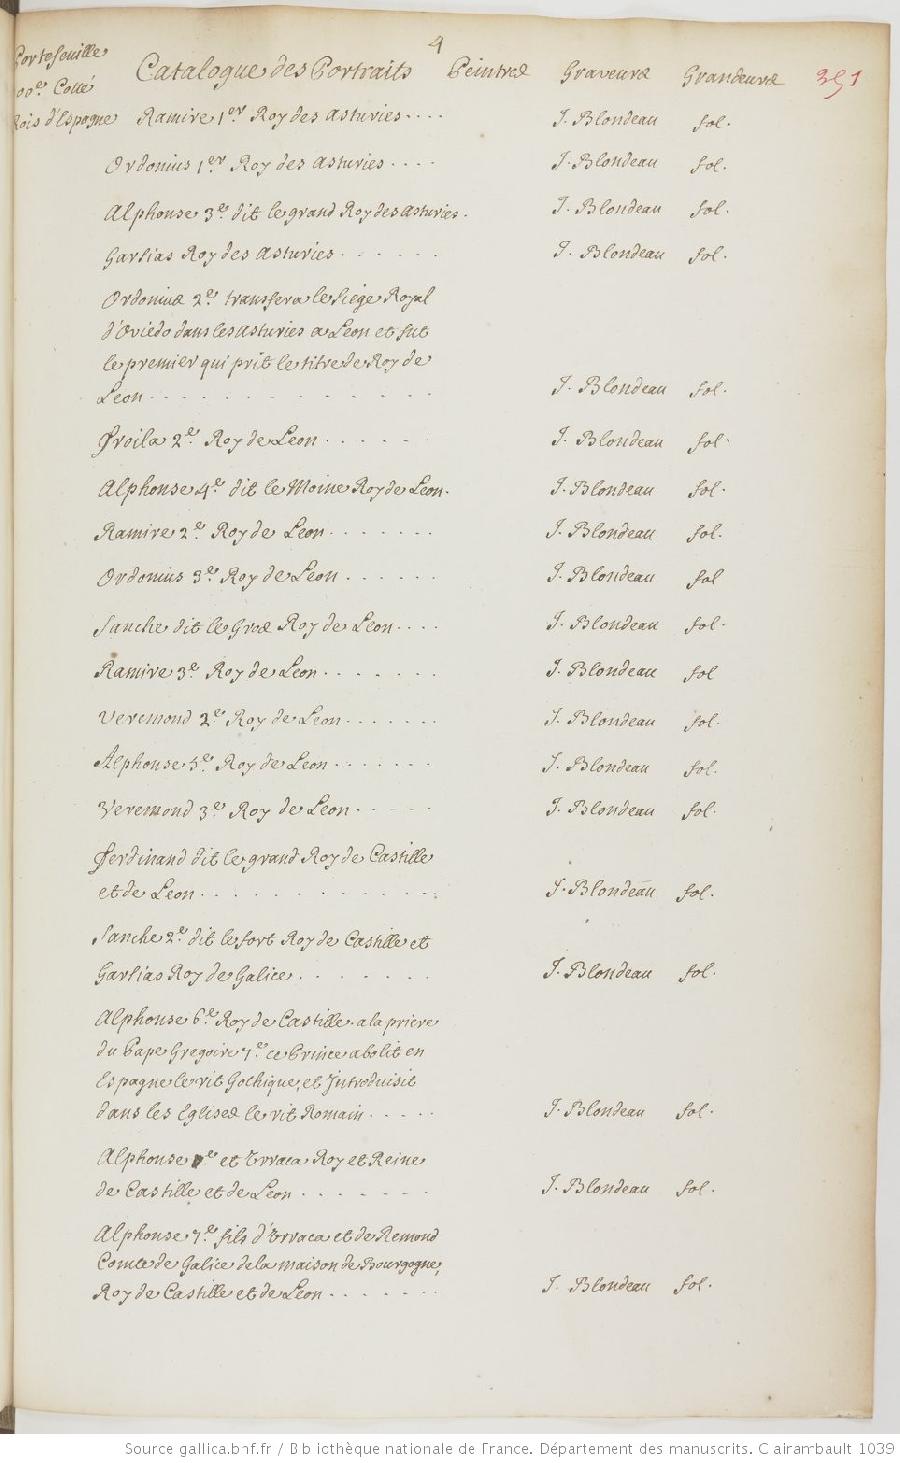 4
Portefeuille Catalogue des Portraits Peintres Graveurs Grandeurs 351
Cotté
Rois d'Espagne Ramire 1er Roy des asturies .... J. Blondeau fol.
Ordonius 1er Roy des asturies .... J. Blondeau fol.
Alphonse 3e dit le grand Roy des asturies. J. Blondeau fol.
Garsias Roy des asturies ...... J. Blondeau fol.
Ordonius 2e transfera le siege Royal
d'Oviedo dans les asturies a Leon et fut
le premier qui prit le titre de Roy de
Leon .............. J. Blondeau fol.
Froila 2e Roy de Leon ...... J. Blondeau fol.
Alphonse 4e dit le Moine Roy de Leon. J. Blondeau fol.
Ramire 2e Roy de Leon ....... J. Blondeau fol.
Ordonius 3e Roy de Leon ...... J. Blondeau fol
Sanche dit le Gros Roy de Leon .... J. Blondeau fol.
Ramire 3e Roy de Leon ....... J. Blondeau fol
Veremond 2e Roy de Leon ....... J. Blondeau fol.
Alphonse 5e Roy de Leon ....... J. Blondeau fol.
Veremond 3e Roy de Leon ..... J. Blondeau fol.
Ferdinand dit le grand Roy de Castille
et de Leon ............. J. Blondeau fol.
Sanche 2e dit le fort Roy de Castille et
Garsias Roy de Galice ....... J. Blondeau fol.
Alphonse 6e Roy de Castille. a la priere
du Pape Gregoire 7e ce Prince abolit en
Espagne le rit Gothique, et Introduisit
dans les Eglises le rit Romain ..... J. Blondeau fol.
Alphonse et Urraca Roy et Reine
de Castille et de Leon ....... J. Blondeau fol.
Alphonse 7e fils d'Urraca et de Remond
Comte de Galice de la maison de Bourgogne,
Roy de Castille et de Leon ....... J. Blondeau fol.
Source gallica.bnf.fr / Bibliothèque nationale de France. Département des manuscrits. Clairambault 1039